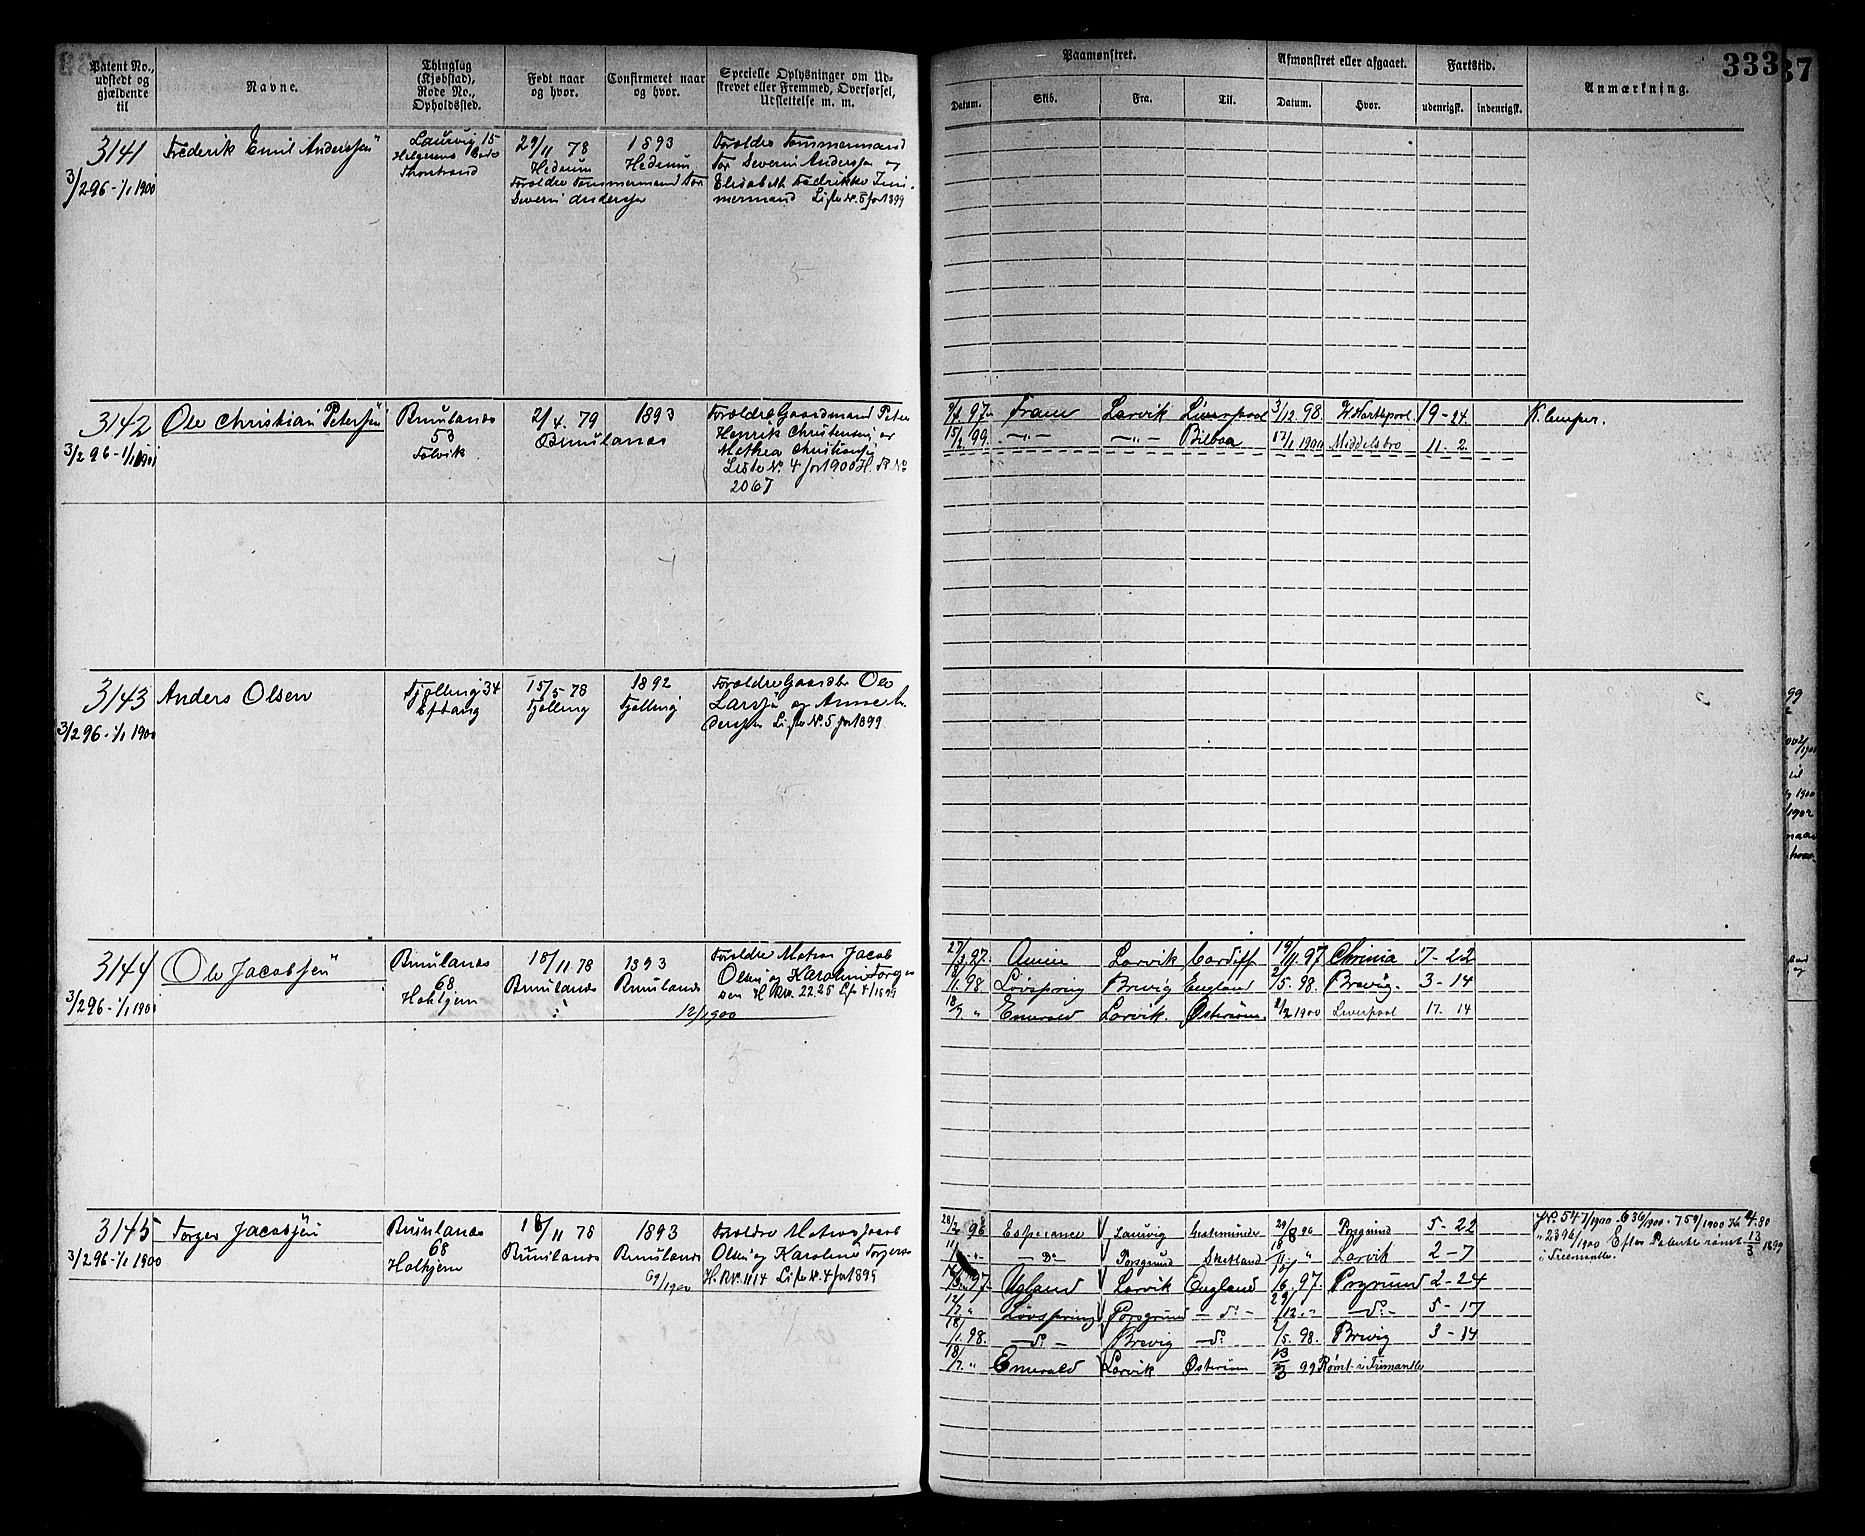 Patent No., udstedt og gjældende til
Navne.
Thinglag (Kjøbstad), Rode No., Opholdssted.
Født naar og hvor.
Confirmeret naar og hvor.
Specielle Oplysninger om Udskrevet eller Fremmed, Overførsel, Udslettelse m. m.
Paamønstret.
Afmønstret eller afgaaet.
Fartstid.
Anmærkning.
333
37
Datum.
Skib.
Fra.
Til.
Datum.
Hvor.
udenrigsk.
indenrigsk.
3141
3/2 96 - 1/1 1900
Frederik Emil Anderssen
Laurvig 15
Thorstrand
29/11 78
Hedrum
Forældre Tømmermand Tor
Severin Anderssen
1893
Hedrum
Forældre Tømmermand
Tor Severin Anderssen og
Elisabeth Fredrikke
Liste N. 5 for 1899
3142
3/2 96 - 1/1 1901
Ole Christian Petersen
Brunlanes
53
21/4. 79
Brunlanes
1893
Forældre Gaardmand Peter
Henrik Christensen og
Mathea Christians
Liste N. 4 for 1900 H. R No
2067
97 Fram Larvik Liverpool 3/12 98. W Hartlpool 19 - 24.
99. - " - - " - Bilboa 1900 Middelsbro 11 - 2
3143
3/2 96 - 1/1 1900
Anders Olsen
Tjølling 34
Eftang
15/5 78
Tjølling
1892
Tjølling
Forældre Gaardbr Ole
Larssen og Anne An-
derssen Liste N. 5 for 1899
3144
3/2 96 - 1/1 1901
Ole Jacobsen
Brunlanes
68.
Holtjern
18/11 78
Brunlanes
1893
Brunlanes
12/2 1900
Forældre Matros Jacob
Olsen og Karoline Torger
sen H. RN. 2225 L. 4/1899
97. Larvik Cardiff 19/11 97 Chrinia 7 - 22
98. Løvspring Brevig England 2/5. 98. Brevig. 3 - 14
18/7 " Emerald Larvik. Østersøen 2/2 1900 Liverpool 17 - 14
3145
3/2 96 - 1/1 1900
Torger Jacobsen
Brunlanes
68.
Holtjern
18/11 78
Brunlanes
1893
Brunlanes
1900
Forældre Matros Jacob
Olsen og Karoline Torgers
H. RN. 1114 Liste N. 4 for 1899
96 Esperance Laurvig Geestemünde 29/8 96 Porsgrund 5 - 22
" - Do Porsgrund Shetland " Larvik 2 - 7
97. Ugland Larvik England 97. Prgrund 2 - 24
12/7 " Løvspring Porsgrund - do - 29/12. " - do - 5 - 17
18/1. 98. - do - Brevig - do 2/5 98. Brevig 3 - 14
18/7. " Emerald Larvik Østersøen 13/3 99 Rømt i Frimantle
J.No 547/1900 - 636/1900 - 759/1900
" 2396/1900 Efter rømt 13/3 1899
i Freemantle.